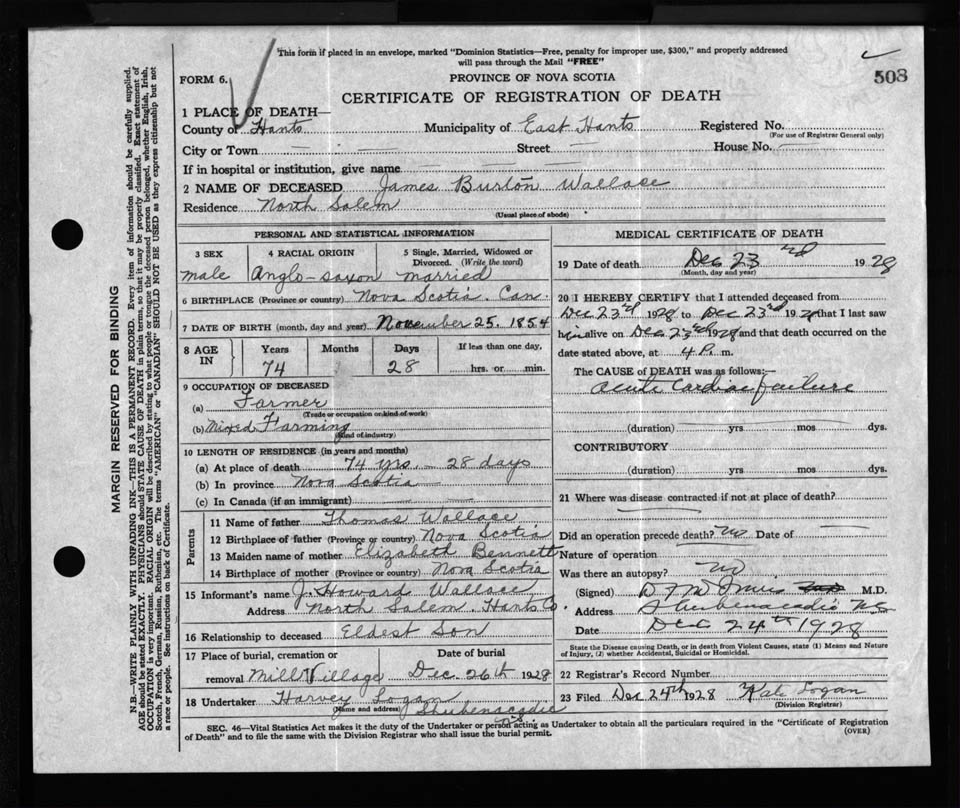 This form if placed in an envelope, marked "Dominion Statistics—Free, penalty for improper use, $300," and properly addressed
will pass through the Mail "FREE"
508
FORM 6.
PROVINCE OF NOVA SCOTIA
CERTIFICATE OF REGISTRATION OF DEATH
1 PLACE OF DEATH—
County of Hants Municipality of East Hants Registered No.
(For use of Registrar General only)
City or Town — — Street — House No. —
If in hospital or institution, give name
2 NAME OF DECEASED James Burton Wallace
Residence North Salem
(Usual place of abode)
PERSONAL AND STATISTICAL INFORMATION
3 SEX 4 RACIAL ORIGIN 5 Single, Married, Widowed or
Divorced. (Write the word)
male Anglo-saxon married
6 BIRTHPLACE (Province or country) Nova Scotia. Can.
7 DATE OF BIRTH (month, day and year) November 25. 1854
8 AGE IN Years Months Days If less than one day,
74 28 hrs. or min.
9 OCCUPATION OF DECEASED
(a) Farmer
(Trade or occupation or kind of work)
(b) Mixed Farming
(Kind of industry)
10 LENGTH OF RESIDENCE (in years and months)
(a) At place of death 74 yrs. - 28 days
(b) In province Nova Scotia
(c) In Canada (if an immigrant)
Parents
11 Name of father Thomas Wallace
12 Birthplace of father (Province or country) Nova Scotia
13 Maiden name of mother Elizabeth Bennett
14 Birthplace of mother (Province or country) Nova Scotia
15 Informant's name J. Howard Wallace
Address North Salem. Hants Co.
16 Relationship to deceased Eldest Son
17 Place of burial, cremation or Date of burial
removal Mill Village Dec. 26th 1928
18 Undertaker Harvey Logan
(Name and address) Shubenacadie
N.S.
MEDICAL CERTIFICATE OF DEATH
19 Date of death Dec 23rd 1928
(Month, day and year)
20 I HEREBY CERTIFY that I attended deceased from
Dec 23rd 1928 to Dec 23rd 1928, that I last saw
him alive on Dec 23rd 1928 and that death occurred on the
date stated above, at 4 P. m.
The CAUSE of DEATH was as follows:—
Acute Cardiac failure
(duration) yrs mos dys.
CONTRIBUTORY
(duration) yrs. mos dys.
21 Where was disease contracted if not at place of death?
Did an operation precede death? no Date of
Nature of operation
Was there an autopsy? no
(Signed) M.D.
Address Shubenacadie N.S.
Date Dec 24th 1928
State the Disease causing Death, or in death from Violent Causes, state (1) Means and Nature
of Injury, (2) whether Accidental, Suicidal or Homicidal.
22 Registrar's Record Number
23 Filed Dec 24th 1928 Kate Logan
(Division Registrar)
SEC. 46—Vital Statistics Act makes it the duty of the Undertaker or person acting as Undertaker to obtain all the particulars required in the "Certificate of Registration
of Death" and to file the same with the Division Registrar who shall issue the burial permit.
(OVER)
MARGIN RESERVED FOR BINDING
N.B.—WRITE PLAINLY WITH UNFADING INK—THIS IS A PERMANENT RECORD. Every item of information should be carefully supplied.
AGE should be stated EXACTLY. PHYSICIANS should STATE CAUSE OF DEATH in plain terms, so that it may be properly classified. Exact statement of
OCCUPATION is very important. RACIAL ORIGIN will be described by stating to what people or tongue the deceased person belonged, whether English, Irish,
Scotch, French, German, Russian, Ruthenian, etc. The terms "AMERICAN" or "CANADIAN" SHOULD NOT BE USED as they express citizenship but not
a race or people. See instructions on back of Certificate.